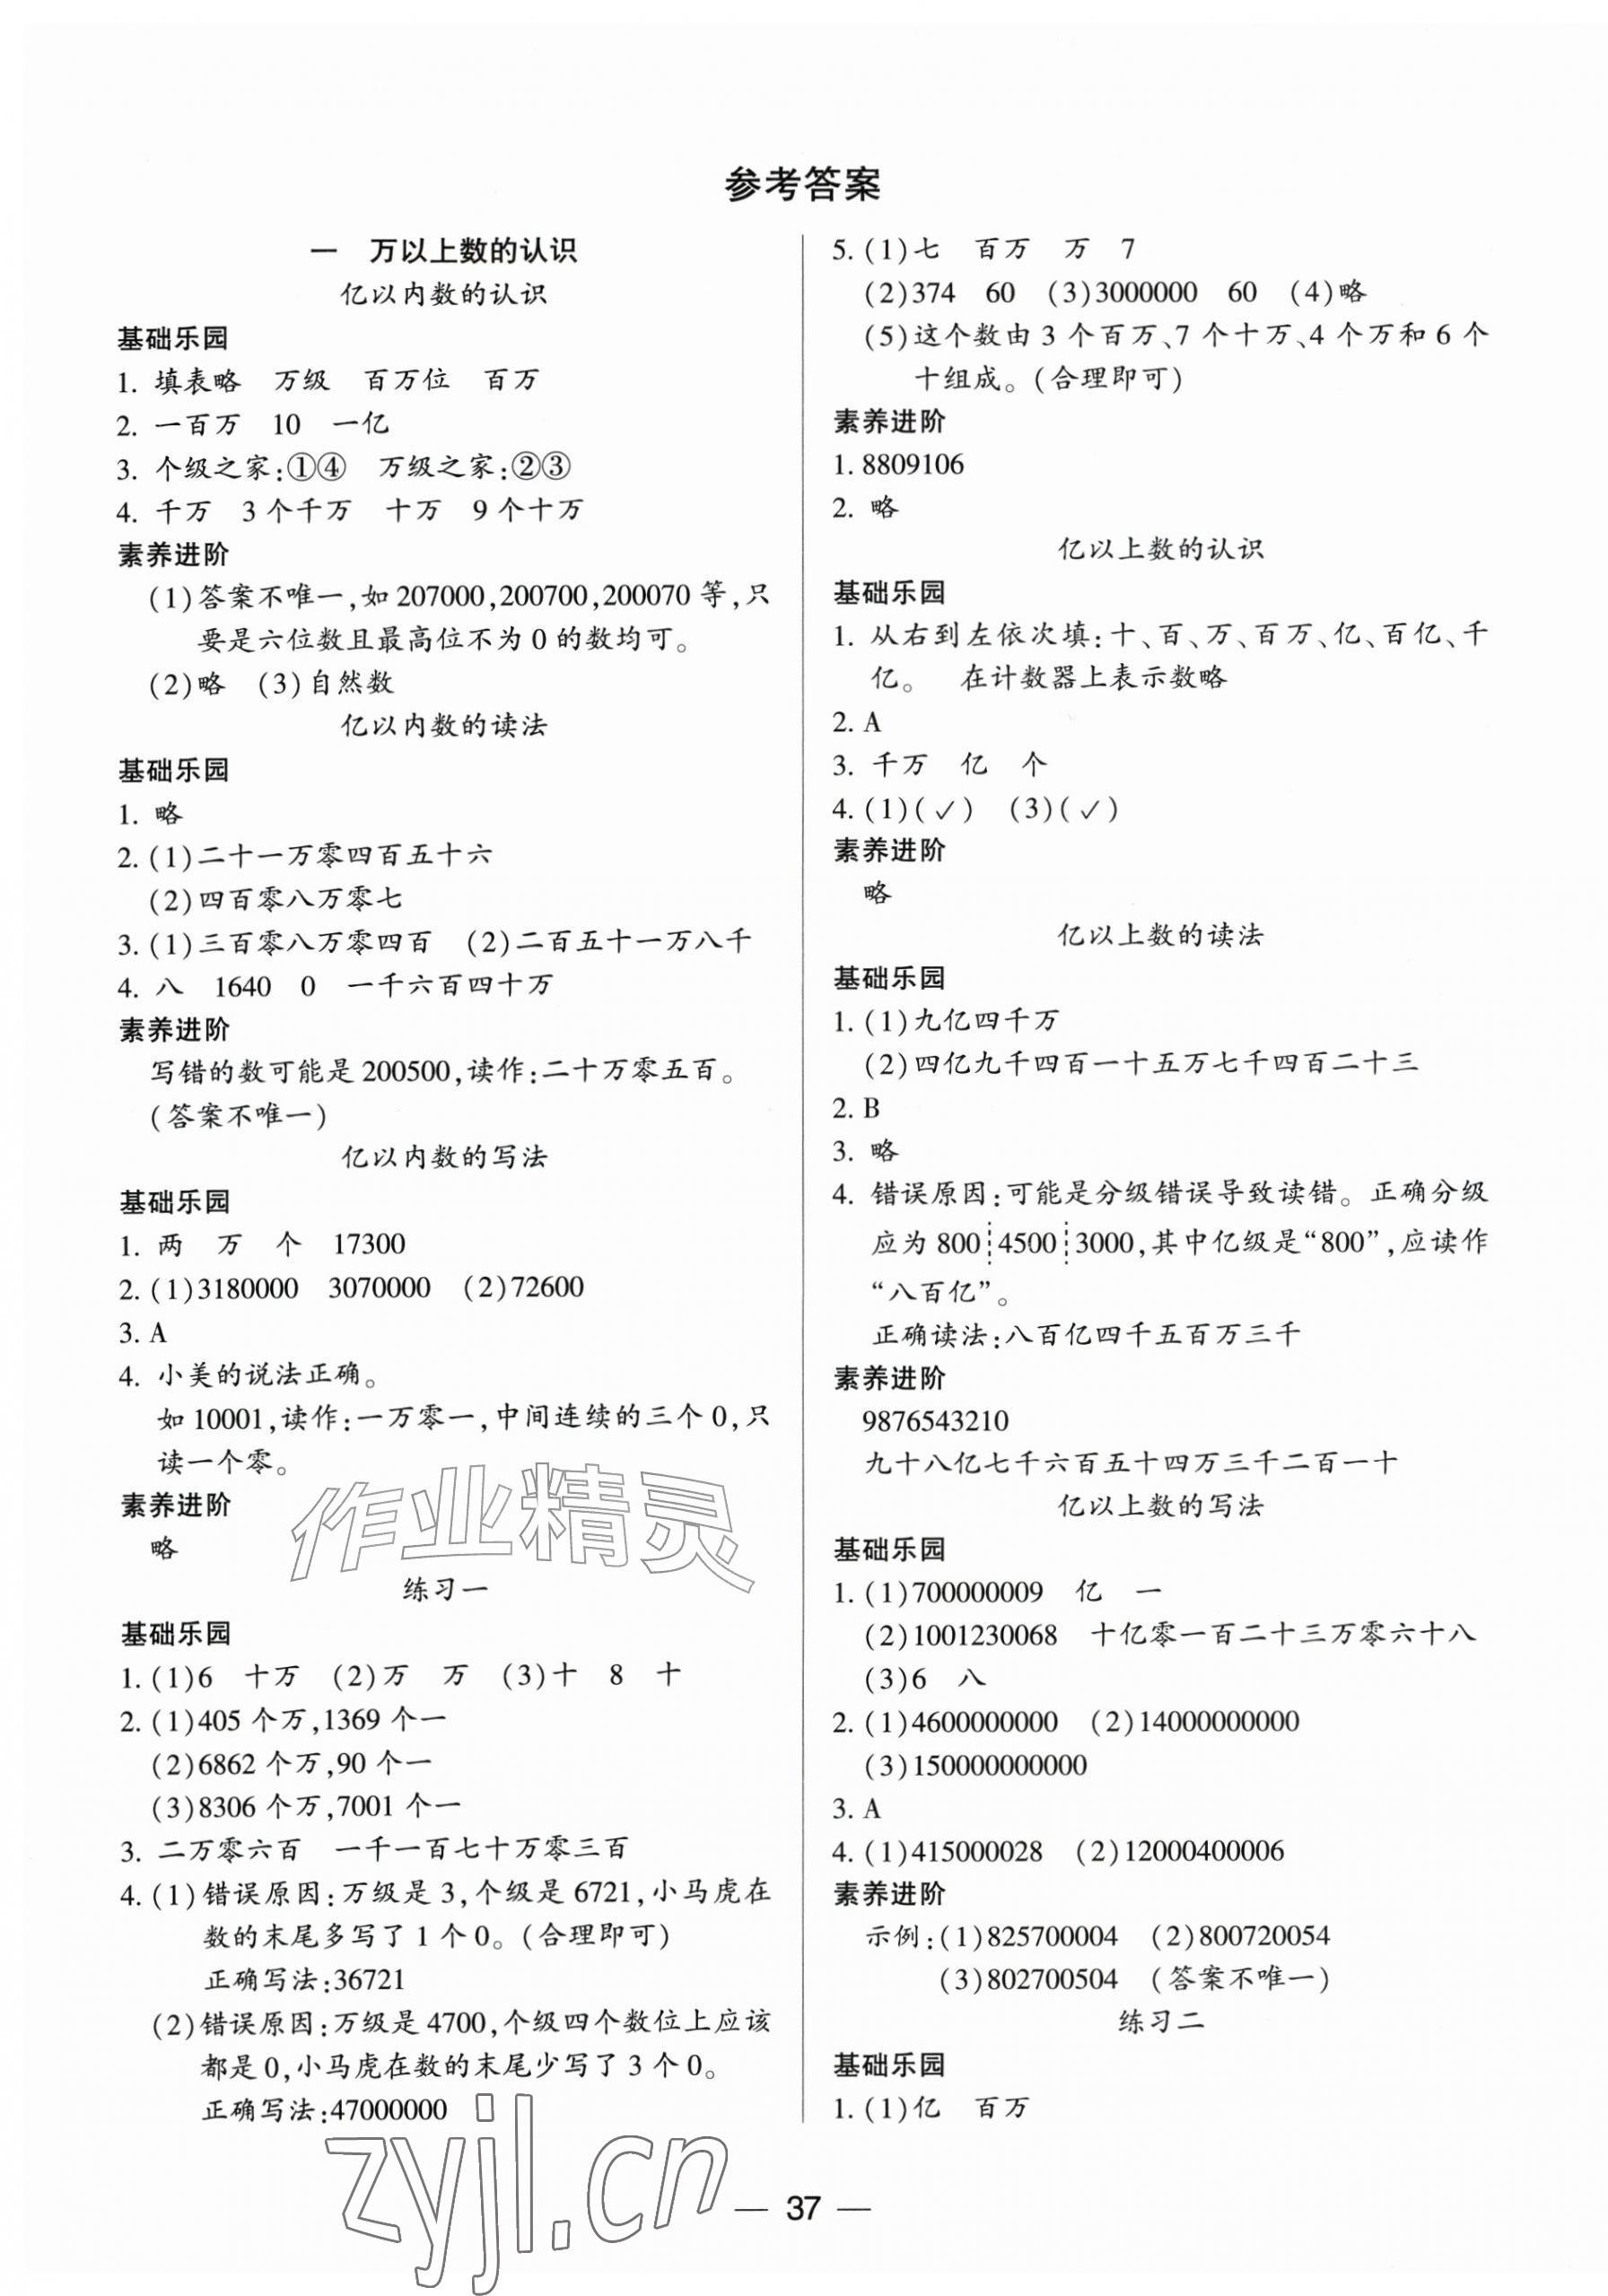 参考答案
一 万以上数的认识
亿以内数的认识
基础乐园
1. 填表略 万级 百万位 百万
2. 一百万 10 一亿
3. 个级之家:①④ 万级之家:②③
4. 千万 3个千万 十万 9个十万
素养进阶
(1)答案不唯一,如207000,200700,200070等,只
要是六位数且最高位不为0的数均可。
(2)略 (3)自然数
亿以内数的读法
基础乐园
1. 略
2. (1)二十一万零四百五十六
(2)四百零八万零七
3. (1)三百零八万零四百 (2)二百五十一万八千
4. 八 1640 0 一千六百四十万
素养进阶
写错的数可能是200500,读作:二十万零五百。
(答案不唯一)
亿以内数的写法
基础乐园
1. 两 万 个 17300
2. (1)3180000 3070000 (2)72600
3. A
4. 小美的说法正确。
如10001,读作:一万零一,中间连续的三个0,只
读一个零。
素养进阶
略
练习一
基础乐园
1. (1)6 十万 (2)万 万 (3)十 8 十
2. (1)405个万,1369个一
(2)6862个万,90个一
(3)8306个万,7001个一
3. 二万零六百 一千一百七十万零三百
4. (1)错误原因:万级是3,个级是6721,小马虎在
数的末尾多写了1个0。(合理即可)
正确写法:36721
(2)错误原因:万级是4700,个级四个数位上应该
都是0,小马虎在数的末尾少写了3个0。
正确写法:47000000
5. (1)七 百万 万 7
(2)374 60 (3)3000000 60 (4)略
(5)这个数由3个百万、7个十万、4个万和6个
十组成。(合理即可)
素养进阶
1. 8809106
2. 略
亿以上数的认识
基础乐园
1. 从右到左依次填:十、百、万、百万、亿、百亿、千
亿。 在计数器上表示数略
2. A
3. 千万 亿 个
4. (1)(✓) (3)(✓)
素养进阶
略
亿以上数的读法
基础乐园
1. (1)九亿四千万
(2)四亿九千四百一十五万七千四百二十三
2. B
3. 略
4. 错误原因:可能是分级错误导致读错。正确分级
应为800┊4500┊3000,其中亿级是“800”,应读作
“八百亿”。
正确读法:八百亿四千五百万三千
素养进阶
9876543210
九十八亿七千六百五十四万三千二百一十
亿以上数的写法
基础乐园
1. (1)700000009 亿 一
(2)1001230068 十亿零一百二十三万零六十八
(3)6 八
2. (1)4600000000 (2)14000000000
(3)150000000000
3. A
4. (1)415000028 (2)12000400006
素养进阶
示例:(1)825700004 (2)800720054
(3)802700504 (答案不唯一)
练习二
基础乐园
1. (1)亿 百万
作业精灵
zyjl.cn
— 37 —